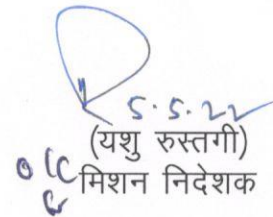 5.5.22
(यशु रुस्तगी)
मिशन निदेशक